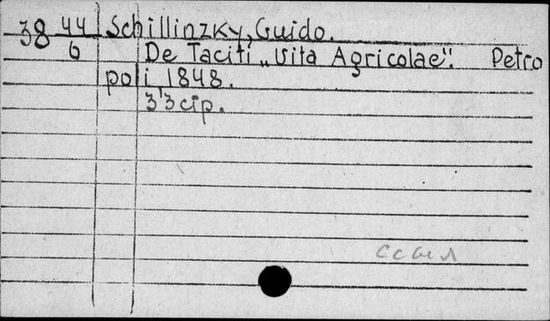 38 44 Schillinzky, Guido.
6 De Taciti „Vita Agricolae". Petro
poli, 1848.
33 cip.
ссыл